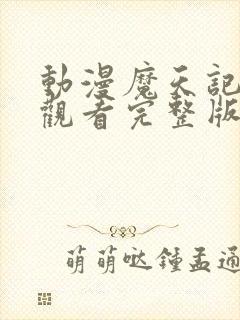 動漫魔天記
觀看完整版
萌萌哒鍾孟通